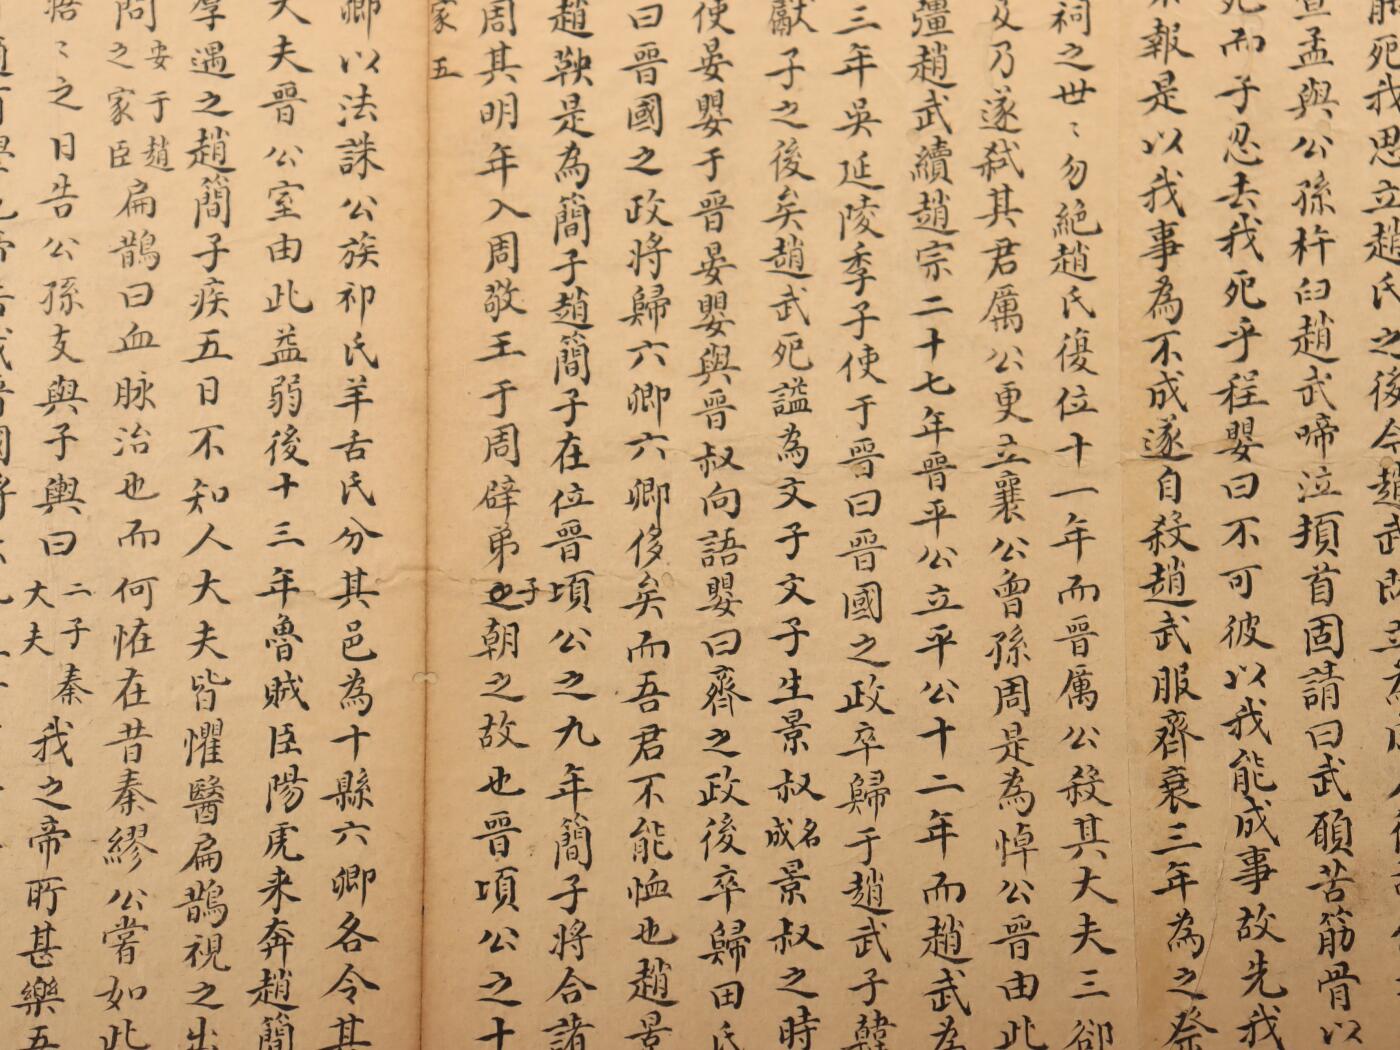 死我思立趙氏之後今趙武既立為
宣孟與公孫杵臼趙武啼泣頓首固請曰武願苦筋骨以
死而子忍去我死乎程嬰曰不可彼以我能成事故先我
報是以我事為不成遂自殺趙武服齊衰三年為之祭
祠之世〻勿絕趙氏復位十一年而晉厲公殺其大夫三郤
及乃遂弒其君厲公更立襄公曾孫周是為悼公晉由此
彊趙武續趙宗二十七年晉平公立平公十二年而趙武為
三年吳延陵季子使于晉曰晉國之政卒歸于趙武子韓
獻子之後矣趙武死謚為文子文子生景叔名成景叔之時
使晏嬰于晉晏嬰與晉叔向語嬰曰齊之政後卒歸田氏
曰晉國之政將歸六卿六卿侈矣而吾君不能恤也趙景
趙鞅是為簡子趙簡子在位晉頃公之九年簡子將合諸
周其明年入周敬王于周辟弟子朝之故也晉頃公之十
家五
卿以法誅公族祁氏羊舌氏分其邑為十縣六卿各令其
大夫晉公室由此益弱後十三年魯賊臣陽虎来奔趙簡
厚遇之趙簡子疾五日不知人大夫皆懼醫扁鵲視之出
問安于趙之家臣扁鵲曰血脉治也而何恠在昔秦繆公嘗如此
寤〻之日告公孫支與子輿曰二子秦大夫我之帝所甚樂吾